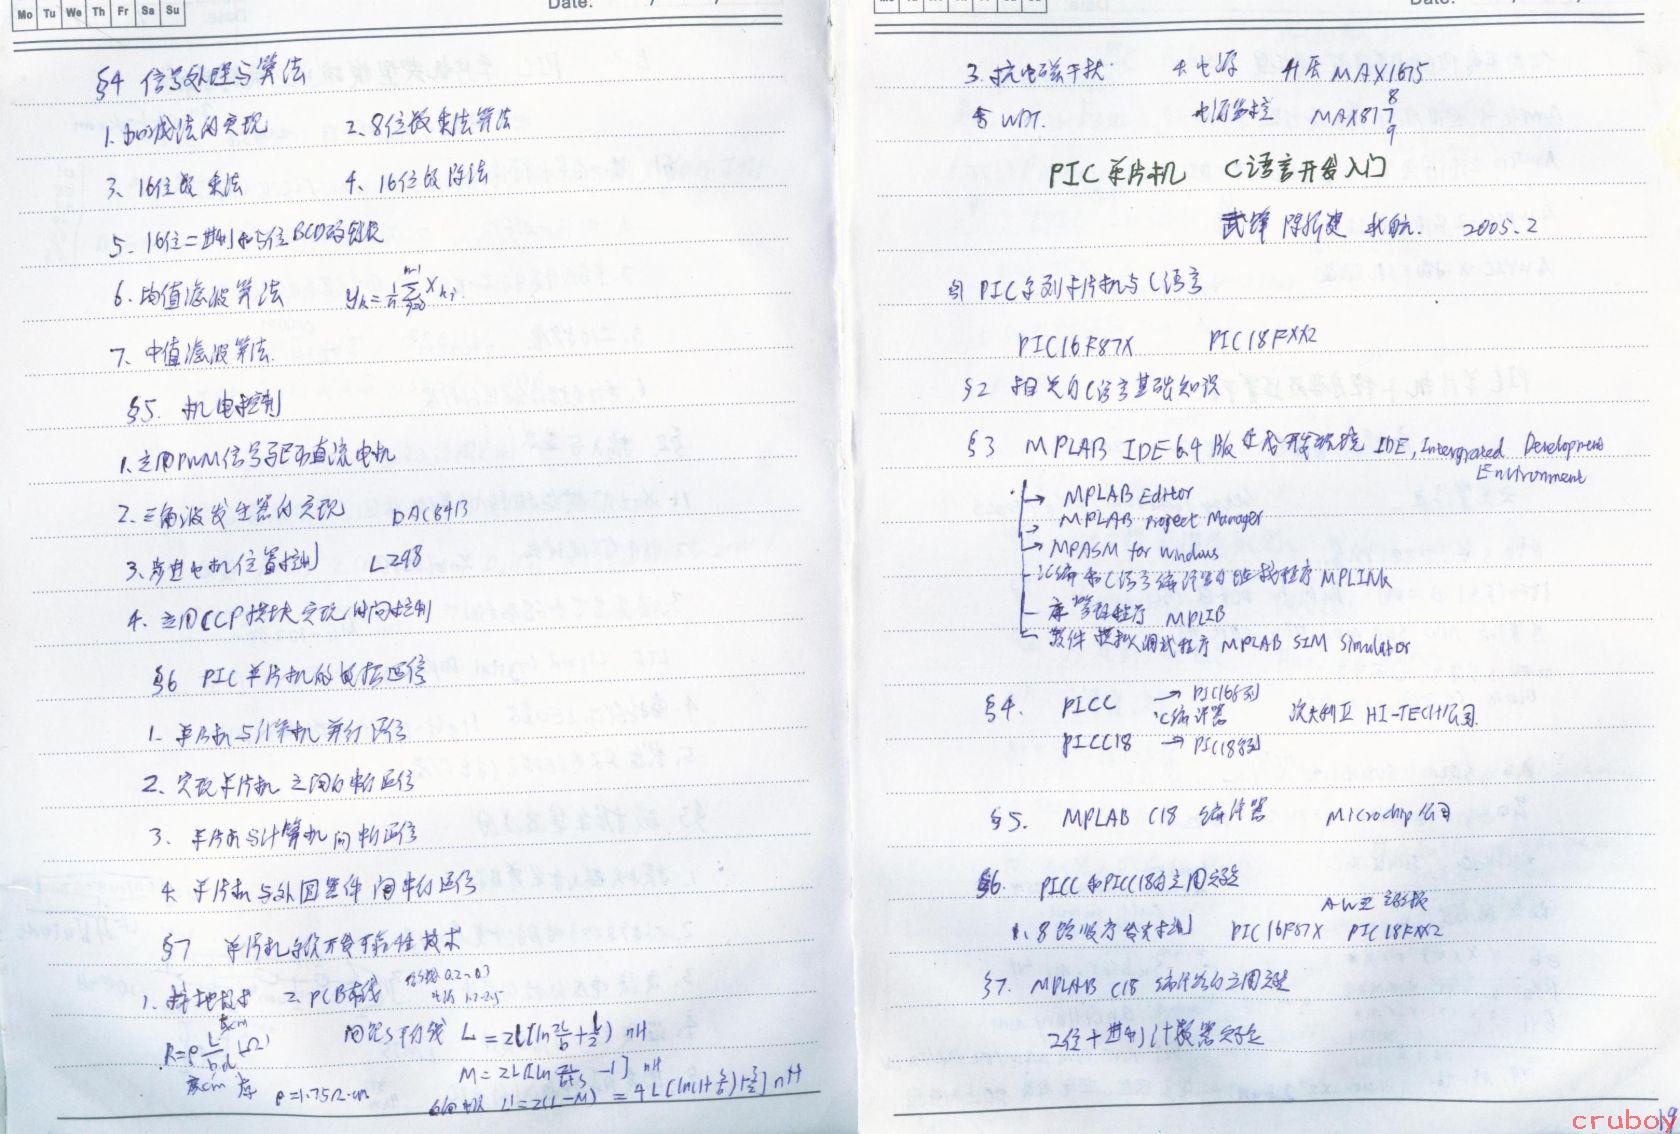 Mo Tu We Th Fr Sa Su
Date: / /
§4 信号处理与算法
1. 加减法的实现 2. 8位数乘法算法
3. 16位数乘法 4. 16位数除法
5. 16位二进制和5位BCD码转换
6. 均值滤波算法
7. 中值滤波算法.
§5. 机电控制
1. 应用PWM信号驱动直流电机
2. 三角波发生器的实现
3. 步进电机位置控制 L298
4. 应用CCP模块实现时间控制
§6 PIC单片机的数据通信
1. 单片机与计算机并行通信
2. 实现单片机之间的串行通信
3. 单片机与计算机间串行通信
4. 单片机与外围器件间串行通信
§7 单片机系统开发可靠性技术
1. 接地技术 2. PCB布线
长cm
R=ρ L/bd (Ω)
宽cm 厚
ρ=1.75Ω·cm
间距S平行线 L=2L[ln 2L/b + 1/2) nH
M=2L[ln 2L/b+s -1] nH
L'=2(L-M) = 4L[ln(1+s/b)+3/2] nH
Date: / /
3. 抗电磁干扰 4. 电源 升压 MAX1675
看WDT. 电源监控 MAX817 8 9
PIC单片机 C语言开发入门
武锋 陈新建 2005.2
§1 PIC系列单片机与C语言
PIC16F87X PIC18FXX2
§2 相关的C语言基础知识
§3 MPLAB IDE 6.4版 集成开发环境 IDE, Intergrated Development
Environment
MPLAB Editor
MPLAB Project Manager
MPASM for windows
汇编和C语言编译器的链接程序 MPLINK
库管理程序 MPLIB
软件模拟调试程序 MPLAB SIM Simulator
§4. PICC → PIC16系列
C编译器 澳大利亚 HI-TECH公司
PICC18 → PIC18系列
§5. MPLAB C18 编译器 Microchip公司
§6. PICC和PICC18的应用实验
1. 8路顺序发光控制 PIC16F87X PIC18FXX2
§7. MPLAB C18 编译器的应用实验
2位十进制计数器实验
19
cruboy